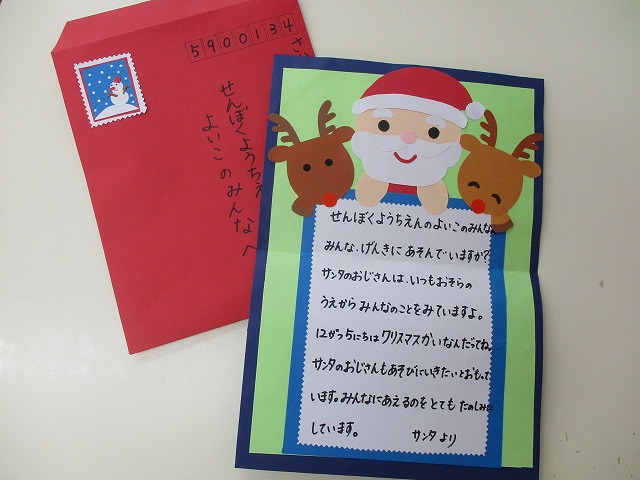 5900134
さい
せんぼくようちえ
よいこのみんなへ
せんぼくようちえんのよいこのみんな、
みんな、げんきにあそんでいますか?
サンタのおじさんは、いつもおそらの
うえからみんなのことをみていますよ。
12がつ5にちはクリスマスかいなんだってね。
サンタのおじさんもあそびにいきたいとおもって
います。みんなにあえるのをとてもたのしみに
しています。
サンタより